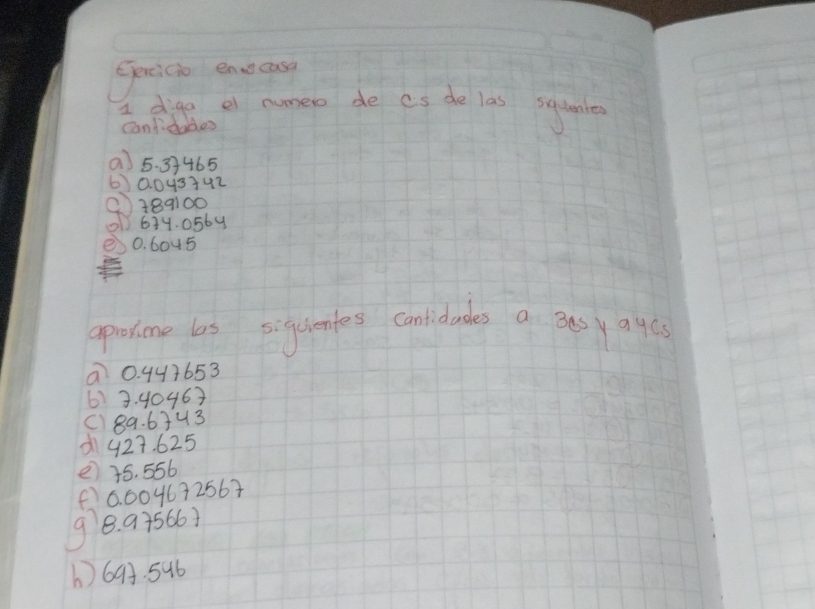 Ejercicio en casa
1 diga el numero de cs de las siguientes
cantidades
a) 5.37465
b) 0.043742
c) 789100
d) 674.0564
e) 0.6045
aproxime las siguientes cantidades a 3cs y a 4cs
a) 0.447653
b) 7.40467
c) 89.6743
d) 427.625
e) 75.556
f) 0.004672567
g) 8.975667
h) 697.546